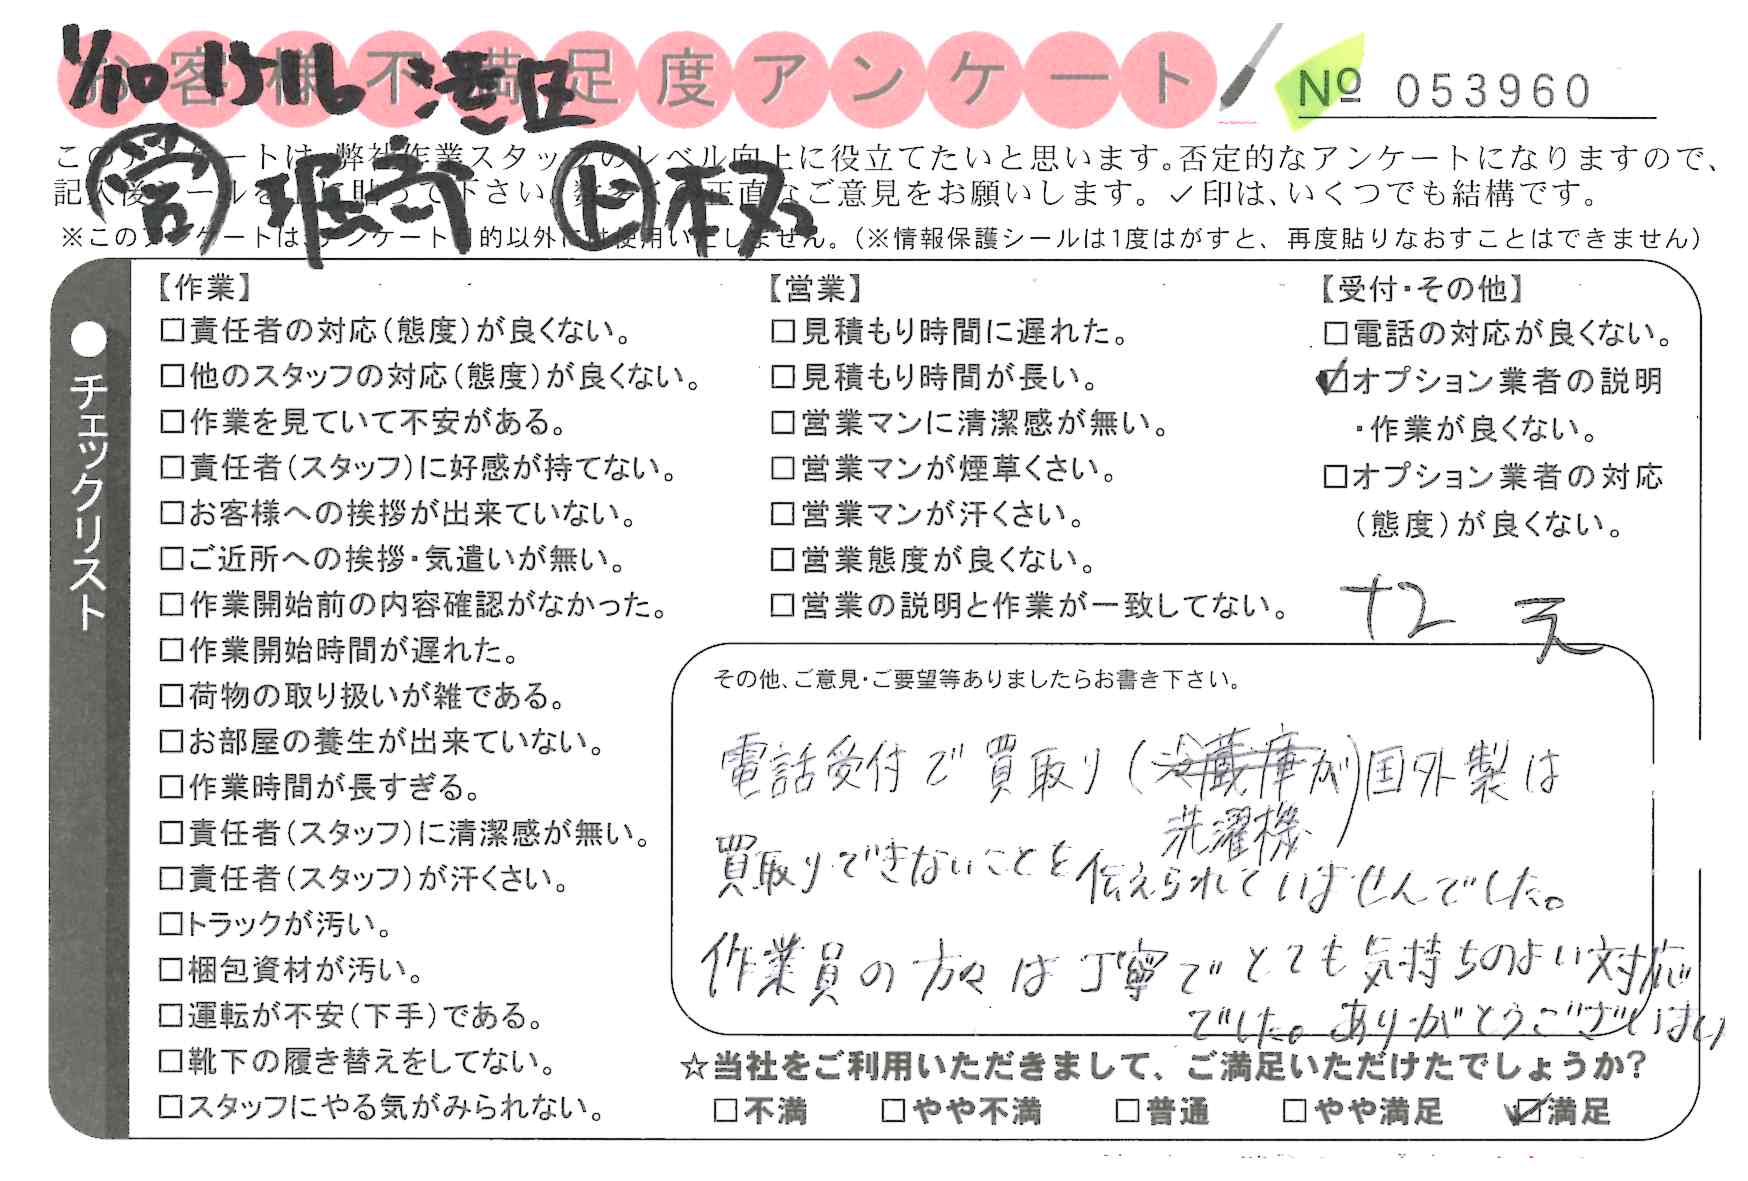 お客様不満足度アンケート
№ 053960
1/10 港区
このアンケートは、弊社作業スタッフのレベル向上に役立てたいと思います。否定的なアンケートになりますので、
記入後シールを上に貼って下さい。数多くの正直なご意見をお願いします。✓印は、いくつでも結構です。
営 ト
※このアンケートは、アンケート目的以外には使用いたしません。（※情報保護シールは1度はがすと、再度貼りなおすことはできません）
●チェックリスト
【作業】
□責任者の対応（態度）が良くない。
□他のスタッフの対応（態度）が良くない。
□作業を見ていて不安がある。
□責任者（スタッフ）に好感が持てない。
□お客様への挨拶が出来ていない。
□ご近所への挨拶・気遣いが無い。
□作業開始前の内容確認がなかった。
□作業開始時間が遅れた。
□荷物の取り扱いが雑である。
□お部屋の養生が出来ていない。
□作業時間が長すぎる。
□責任者（スタッフ）に清潔感が無い。
□責任者（スタッフ）が汗くさい。
□トラックが汚い。
□梱包資材が汚い。
□運転が不安（下手）である。
□靴下の履き替えをしてない。
□スタッフにやる気がみられない。
【営業】
□見積もり時間に遅れた。
□見積もり時間が長い。
□営業マンに清潔感が無い。
□営業マンが煙草くさい。
□営業マンが汗くさい。
□営業態度が良くない。
□営業の説明と作業が一致してない。
【受付・その他】
□電話の対応が良くない。
☑オプション業者の説明
・作業が良くない。
□オプション業者の対応
（態度）が良くない。
+2
その他、ご意見・ご要望等ありましたらお書き下さい。
電話受付で買取り（冷蔵庫が）国外製は
洗濯機
買取りできないことを伝えられていませんでした。
作業員の方々は丁寧でとても気持ちのよい対応
でした。ありがとうございました
☆当社をご利用いただきまして、ご満足いただけたでしょうか?
□不満 □やや不満 □普通 □やや満足 ☑満足